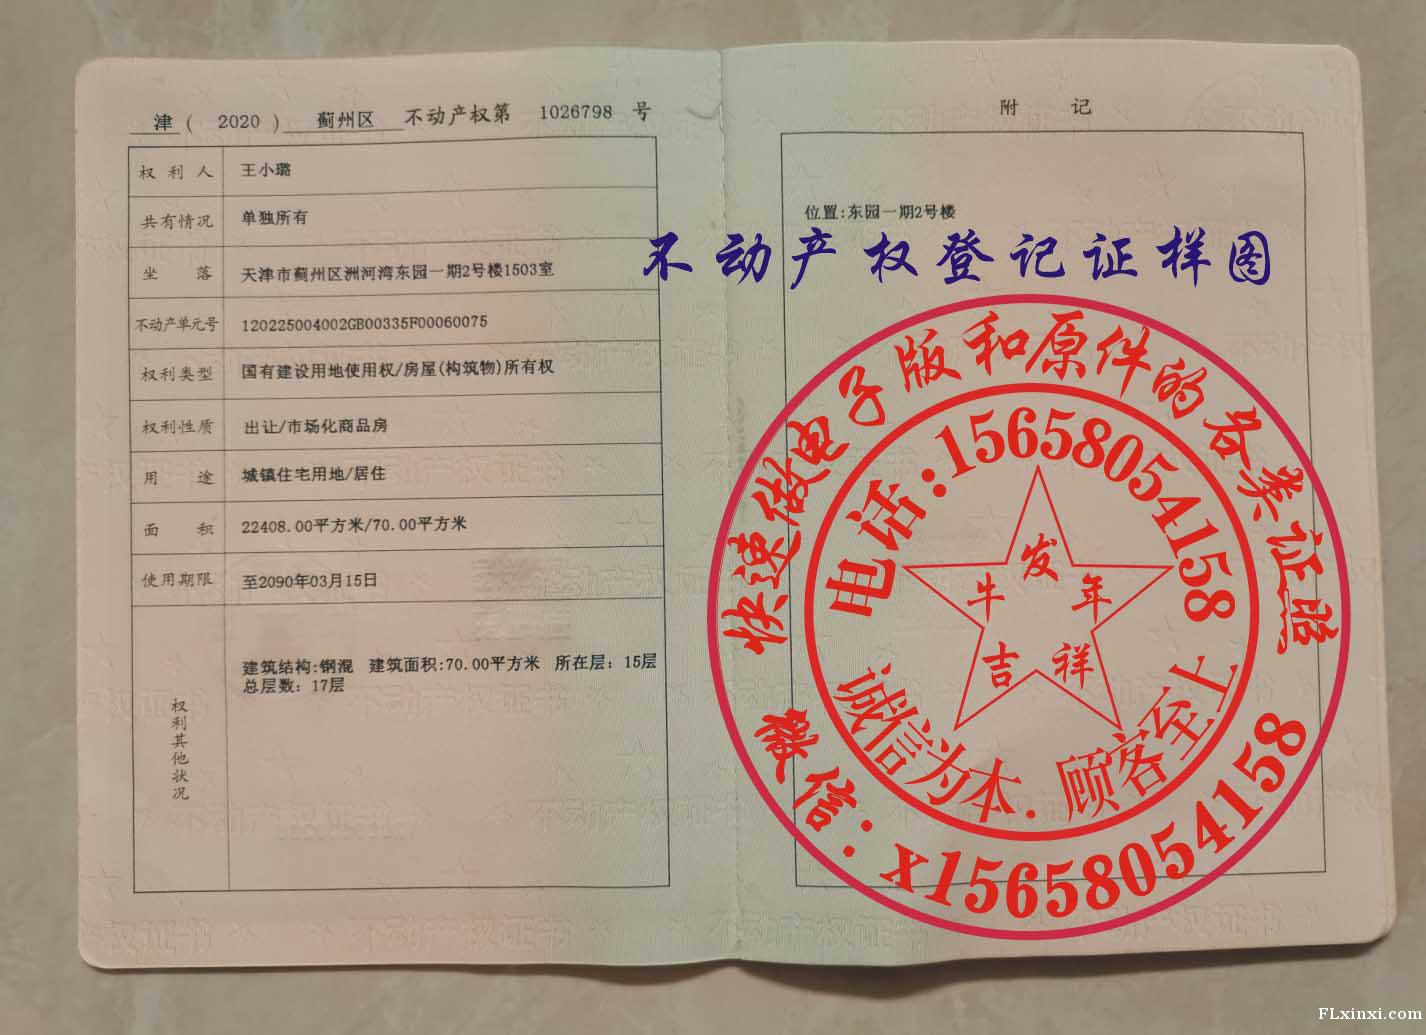 津 ( 2020 ) 蓟州区 不动产权第 1026798 号
权利人 王小璐
共有情况 单独所有
坐落 天津市蓟州区洲河湾东园一期2号楼1503室
不动产单元号 120225004002GB00335F00060075
权利类型 国有建设用地使用权/房屋(构筑物)所有权
权利性质 出让/市场化商品房
用途 城镇住宅用地/居住
面积 22408.00平方米/70.00平方米
使用期限 至2090年03月15日
权利其他状况
建筑结构:钢混 建筑面积:70.00平方米 所在层: 15层
总层数: 17层
附记
位置:东园一期2号楼
不动产权登记证样图
快速做电子版和原件的各类证照
电话:15658054158
发
牛 年
吉 祥
诚信为本.顾客至上
微信:x15658054158
FLxinxi.com